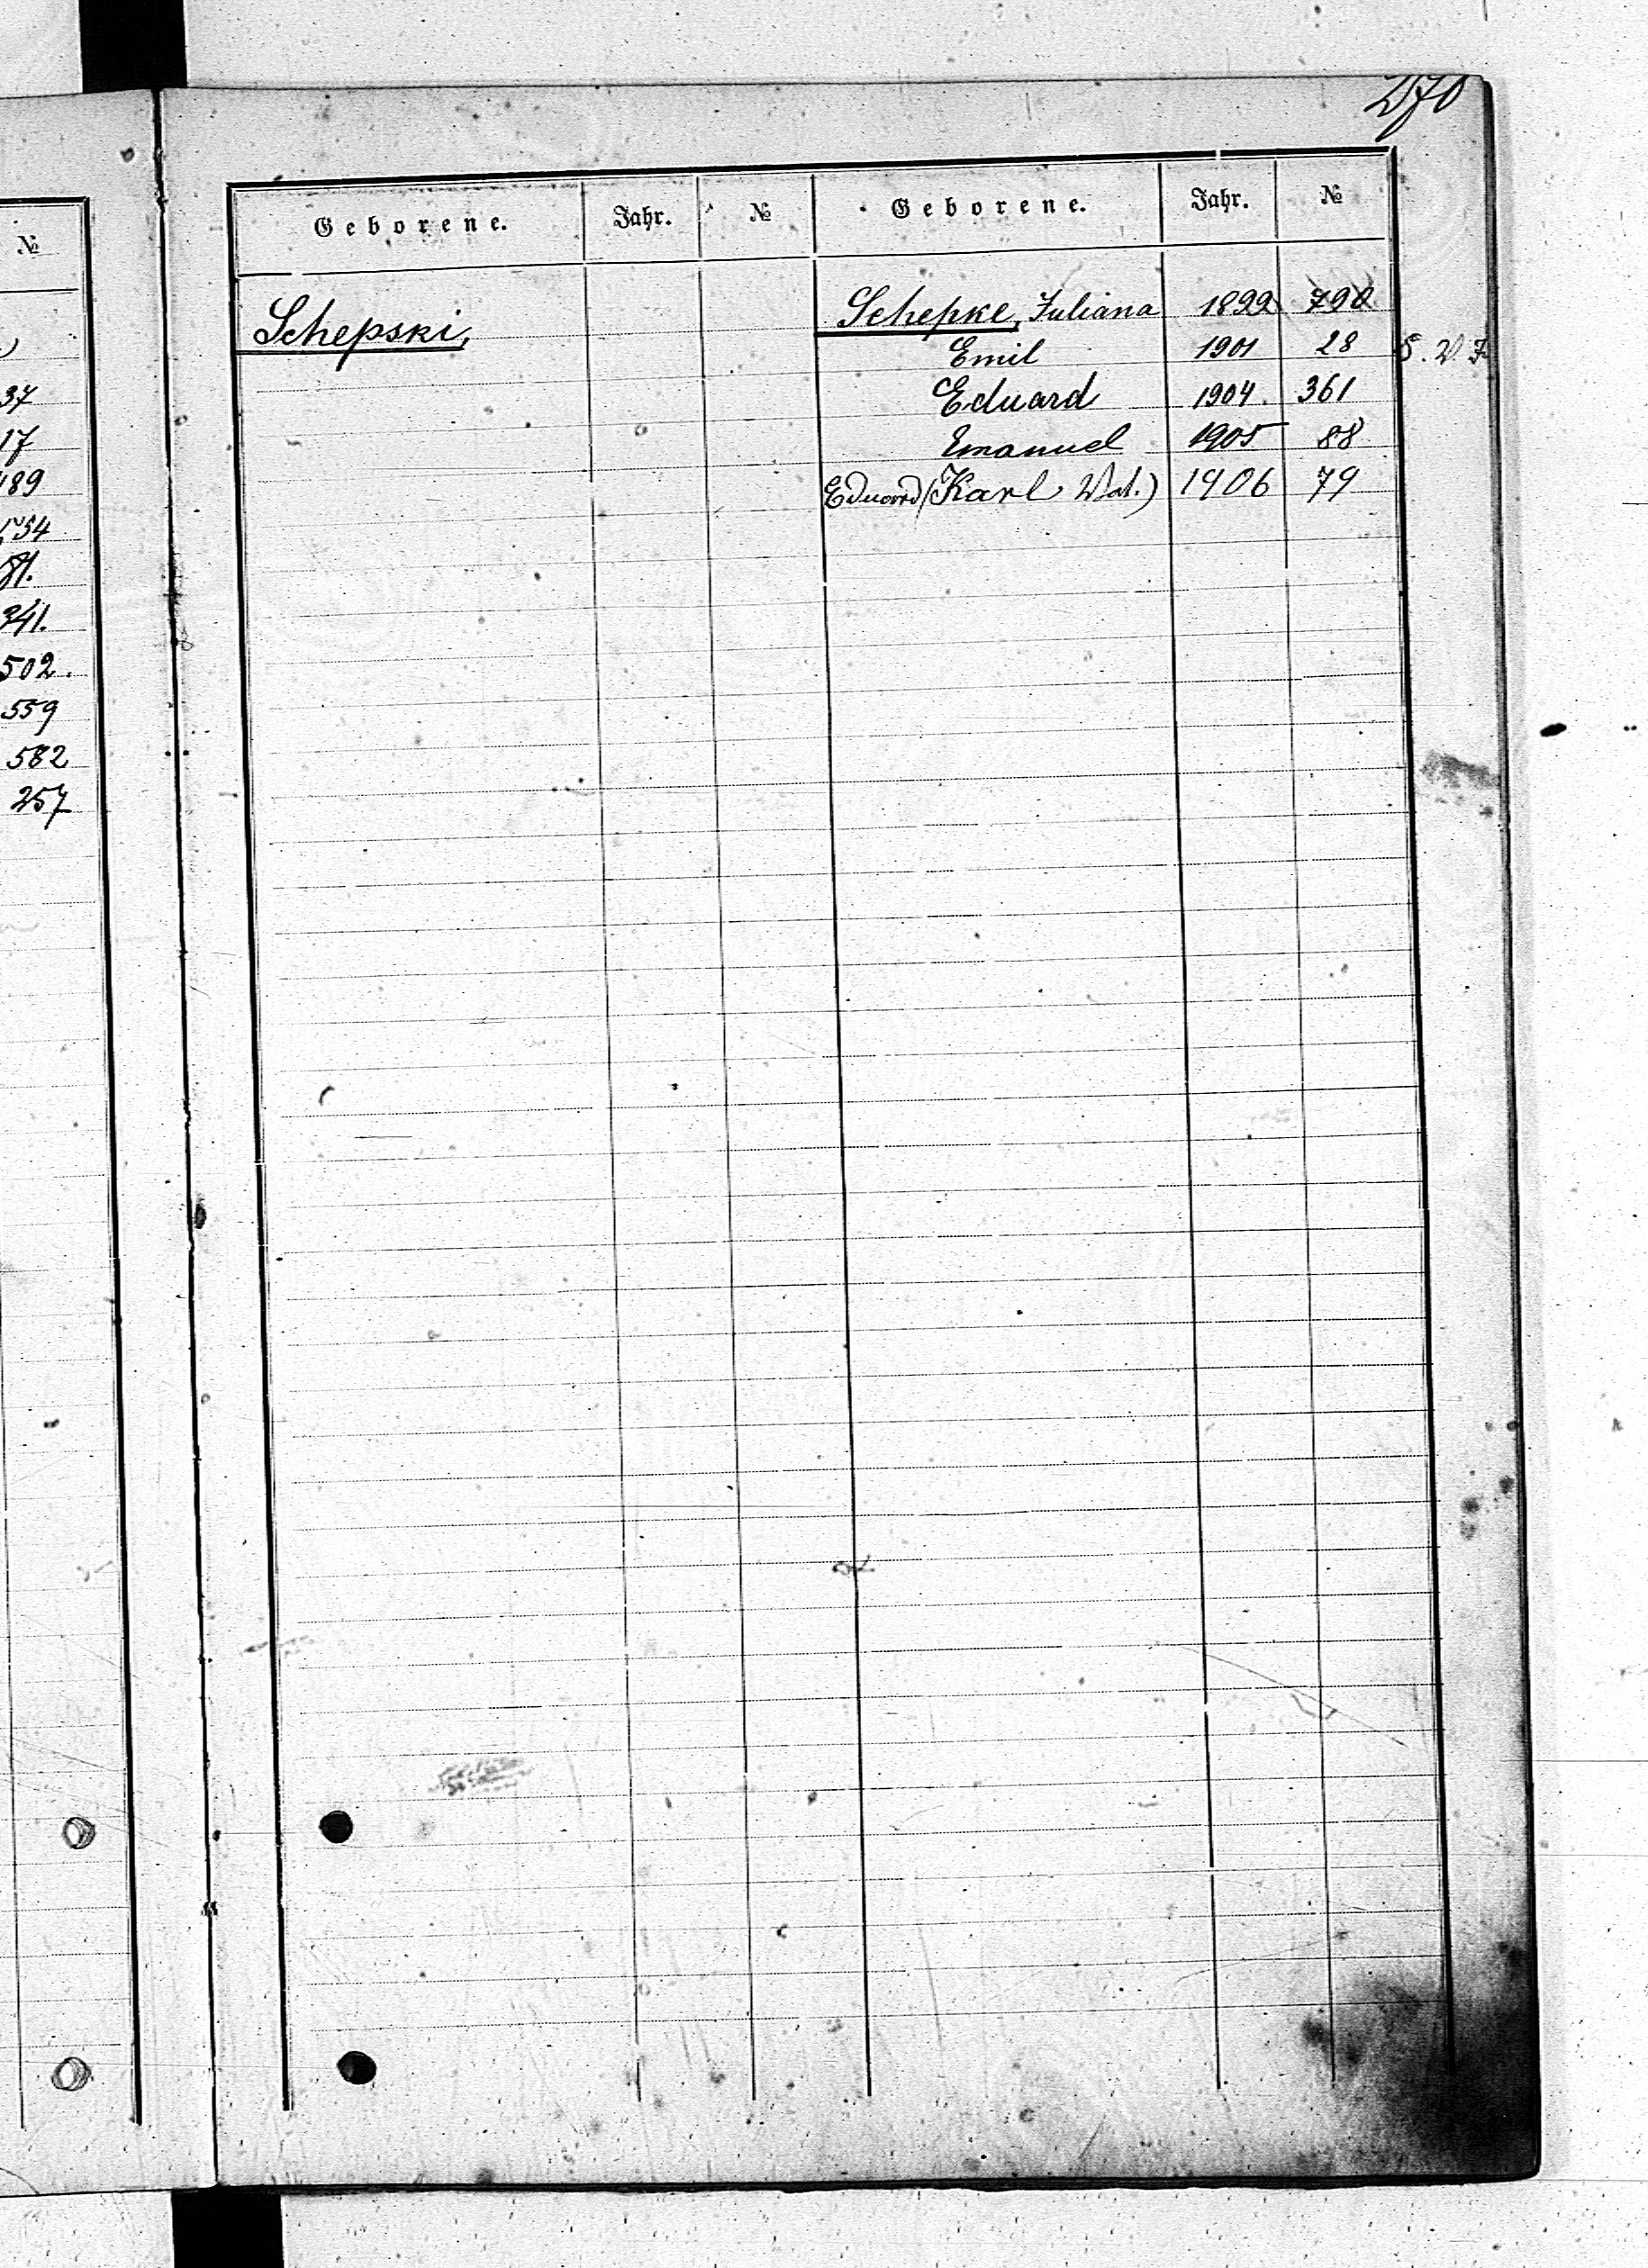 270
№
37
17
489
754
81.
341.
502.
559
582
257
Geborene. Jahr. № Geborene. Jahr. №
Schepski,
Schepke, Juliana 1899 790
Emil 1901 28
Eduard 1904. 361
Emanuel 1905 88
Eduard (Karl Wal.) 1906 79